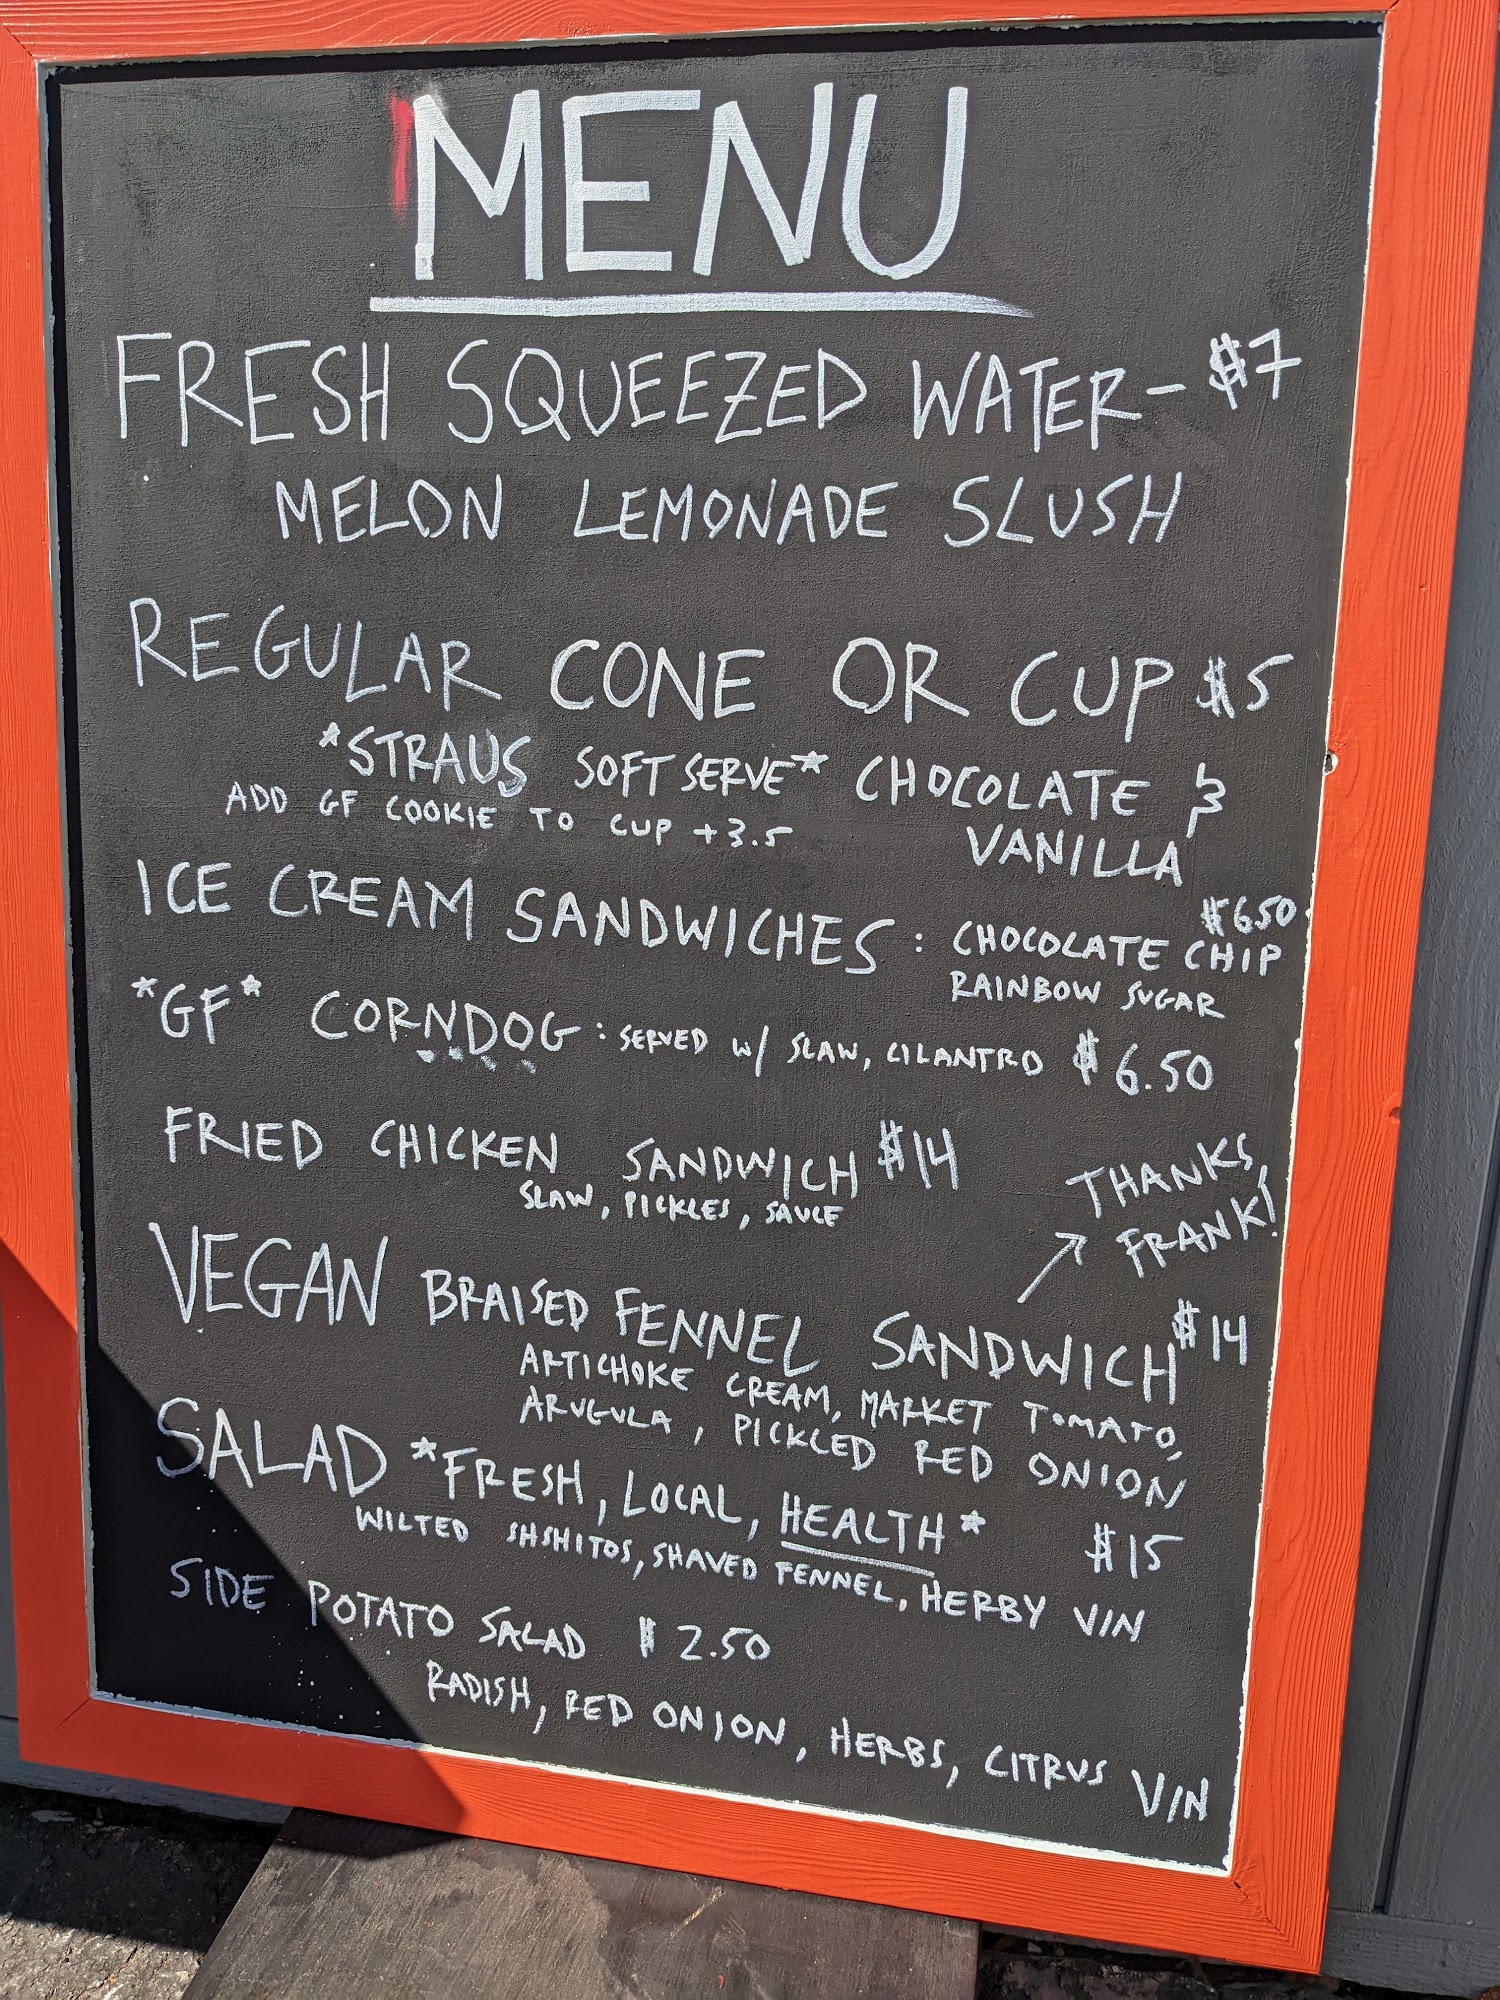 MENU
FRESH SQUEEZED WATER- $7
MELON LEMONADE SLUSH
REGULAR CONE OR CUP $5
*STRAUS SOFT SERVE* CHOCOLATE &
VANILLA
ADD GF COOKIE TO CUP +3.5
ICE CREAM SANDWICHES: CHOCOLATE CHIP $6.50
RAINBOW SUGAR
*GF* CORNDOG: SERVED W/ SLAW, CILANTRO $6.50
FRIED CHICKEN SANDWICH $14
SLAW, PICKLES, SAUCE
THANKS,
FRANK!
VEGAN BRAISED FENNEL SANDWICH $14
ARTICHOKE CREAM, MARKET TOMATO,
ARUGULA, PICKLED RED ONION
SALAD *FRESH, LOCAL, HEALTH* $15
WILTED SHSHITOS, SHAVED FENNEL, HERBY VIN
SIDE POTATO SALAD $2.50
RADISH, RED ONION, HERBS, CITRUS VIN